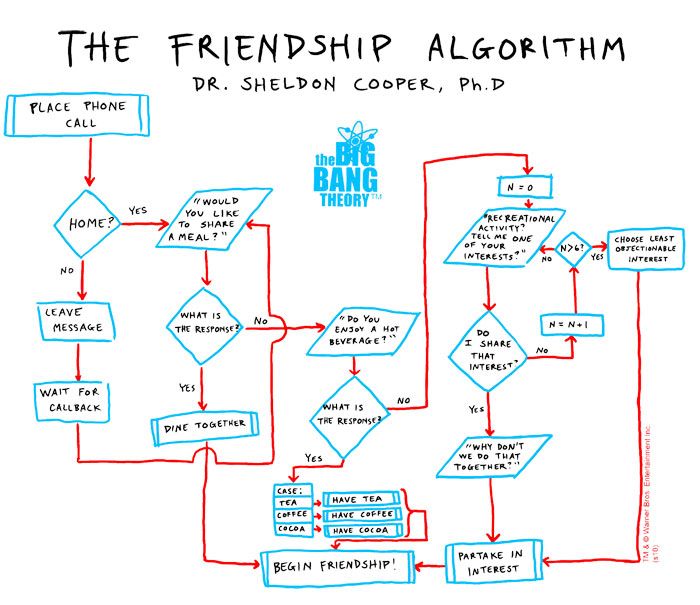 THE FRIENDSHIP ALGORITHM
DR. SHELDON COOPER, Ph.D
PLACE PHONE
CALL
the BIG
BANG
THEORY™
HOME?
YES
NO
LEAVE
MESSAGE
WAIT FOR
CALLBACK
"WOULD
YOU LIKE
TO SHARE
A MEAL?"
WHAT IS
THE RESPONSE?
NO
YES
DINE TOGETHER
"DO YOU
ENJOY A HOT
BEVERAGE?"
WHAT IS
THE RESPONSE?
NO
YES
CASE:
TEA
COFFEE
COCOA
HAVE TEA
HAVE COFFEE
HAVE COCOA
BEGIN FRIENDSHIP!
N = 0
"RECREATIONAL
ACTIVITY?
TELL ME ONE
OF YOUR
INTERESTS?"
N>6?
NO
YES
CHOOSE LEAST
OBJECTIONABLE
INTEREST
N = N+1
DO
I SHARE
THAT
INTEREST?
NO
YES
"WHY DON'T
WE DO THAT
TOGETHER?"
PARTAKE IN
INTEREST
TM & © Warner Bros. Entertainment Inc.
(s10)